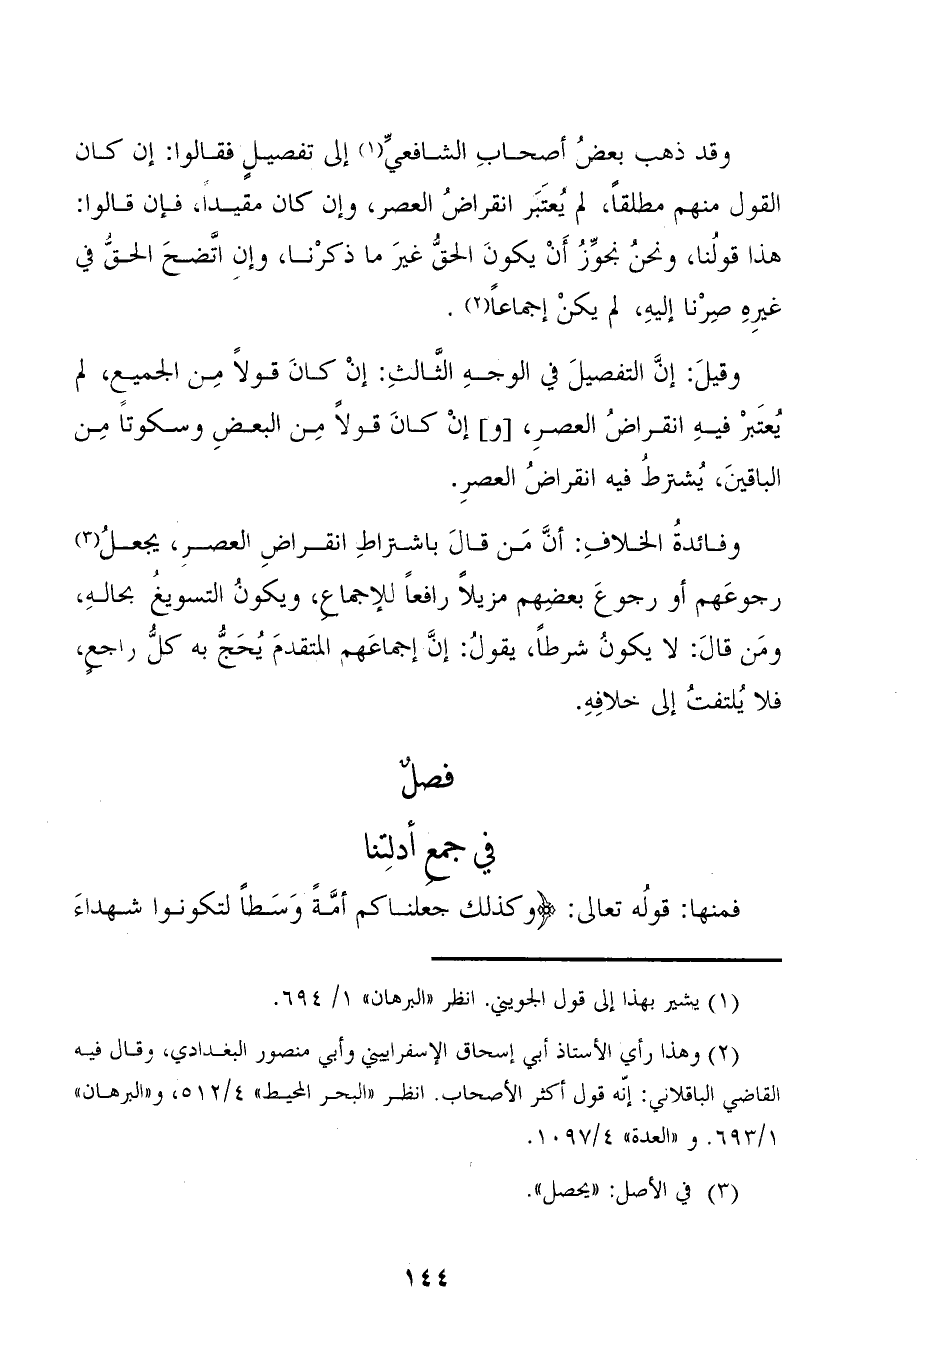 وقد ذهب بعضُ أصحابِ الشافعيِّ(١) إلى تفصيلٍ فقالوا: إن كان
القول منهم مطلقاً، لم يُعتَبَر انقراضُ العصر، وإن كان مقيداً، فإن قالوا:
هذا قولُنا، ونحنُ نجوِّزُ أَنْ يكونَ الحقُّ غيرَ ما ذكرْنا، وإنِ اتَّضحَ الحقُّ في
غيرِهِ صِرْنا إليهِ، لم يكنْ إجماعاً(٢) .
وقيلَ: إنَّ التفصيلَ في الوجهِ الثَّالثِ: إنْ كانَ قولاً مِن الجميعِ، لم
يُعتَبرْ فيهِ انقراضُ العصرِ، [و] إنْ كانَ قولاً مِن البعضِ وسكوتاً مِن
الباقينَ، يُشترطُ فيه انقراضُ العصرِ.
وفائدةُ الخلافِ: أنَّ مَن قالَ باشتراطِ انقراضِ العصرِ، يجعلُ(٣)
رجوعَهم أو رجوعَ بعضِهم مزيلاً رافعاً للإجماعِ، ويكونُ التسويغُ بحالهِ،
ومَن قالَ: لا يكونُ شرطاً، يقولُ: إنَّ إجماعَهم المتقدمَ يُحَجُّ به كلُّ راجعٍ،
فلا يُلتفتُ إلى خلافِهِ.
فصلٌ
في جمعِ أدلتِنا
فمنها: قولُه تعالى: ﴿وكذلك جعلناكم أمَّةً وَسَطاً لتكونوا شهداءَ
(١) يشير بهذا إلى قول الجويني. انظر «البرهان» ١/ ٦٩٤.
(٢) وهذا رأي الأستاذ أبي إسحاق الإسفراييني وأبي منصور البغدادي، وقال فيه
القاضي الباقلاني: إنّه قول أكثر الأصحاب. انظر «البحر المحيط» ٥١٢/٤، و«البرهان»
٦٩٣/١. و «العدة» ١٠٩٧/٤.
(٣) في الأصل: «يحصل».
١٤٤